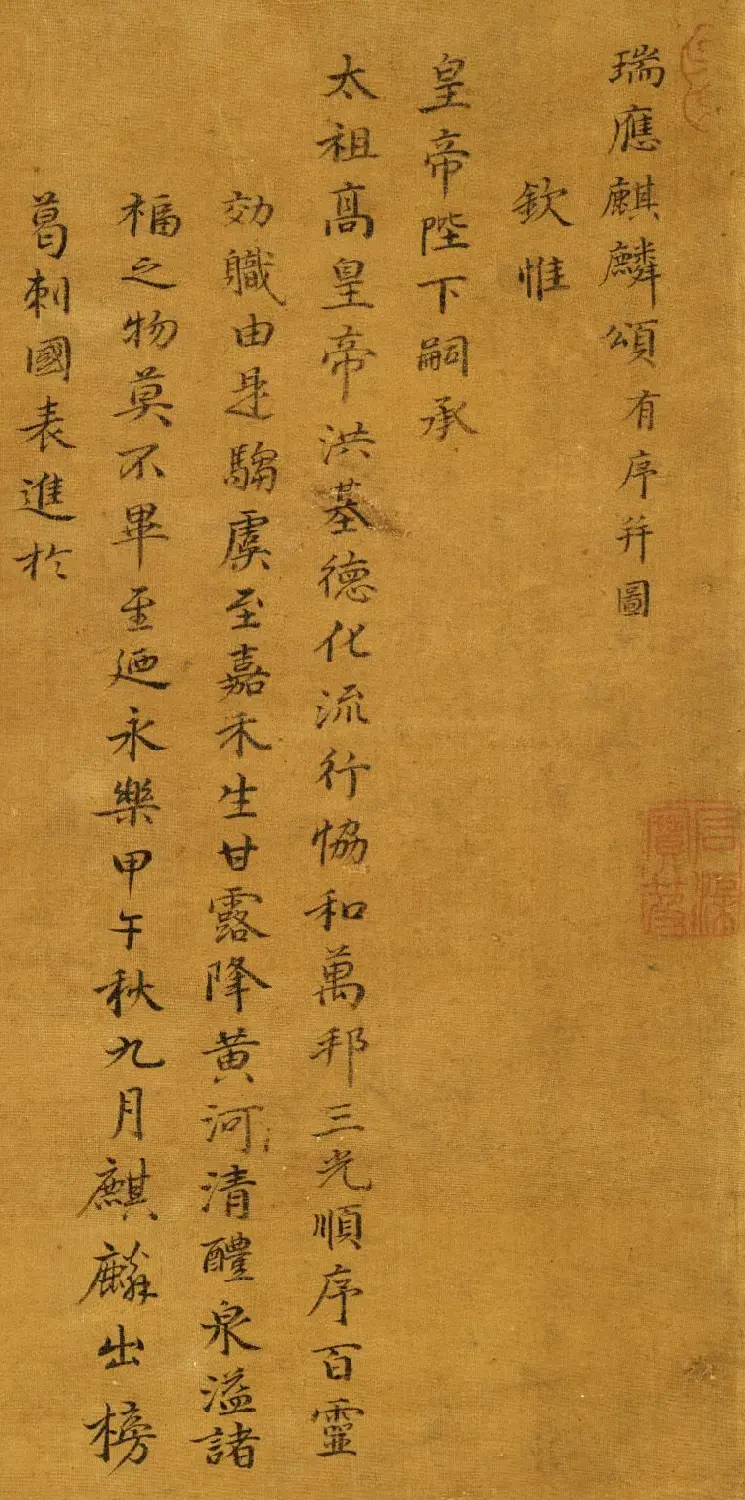 瑞應麒麟頌有序并圖
欽惟
皇帝陛下嗣承
太祖高皇帝洪基德化流行恊和萬邦三光順序百靈
効職由是騶虞至嘉禾生甘露降黄河清醴泉溢諸
福之物莫不畢至廼永樂甲午秋九月麒麟出榜
葛刺國表進於